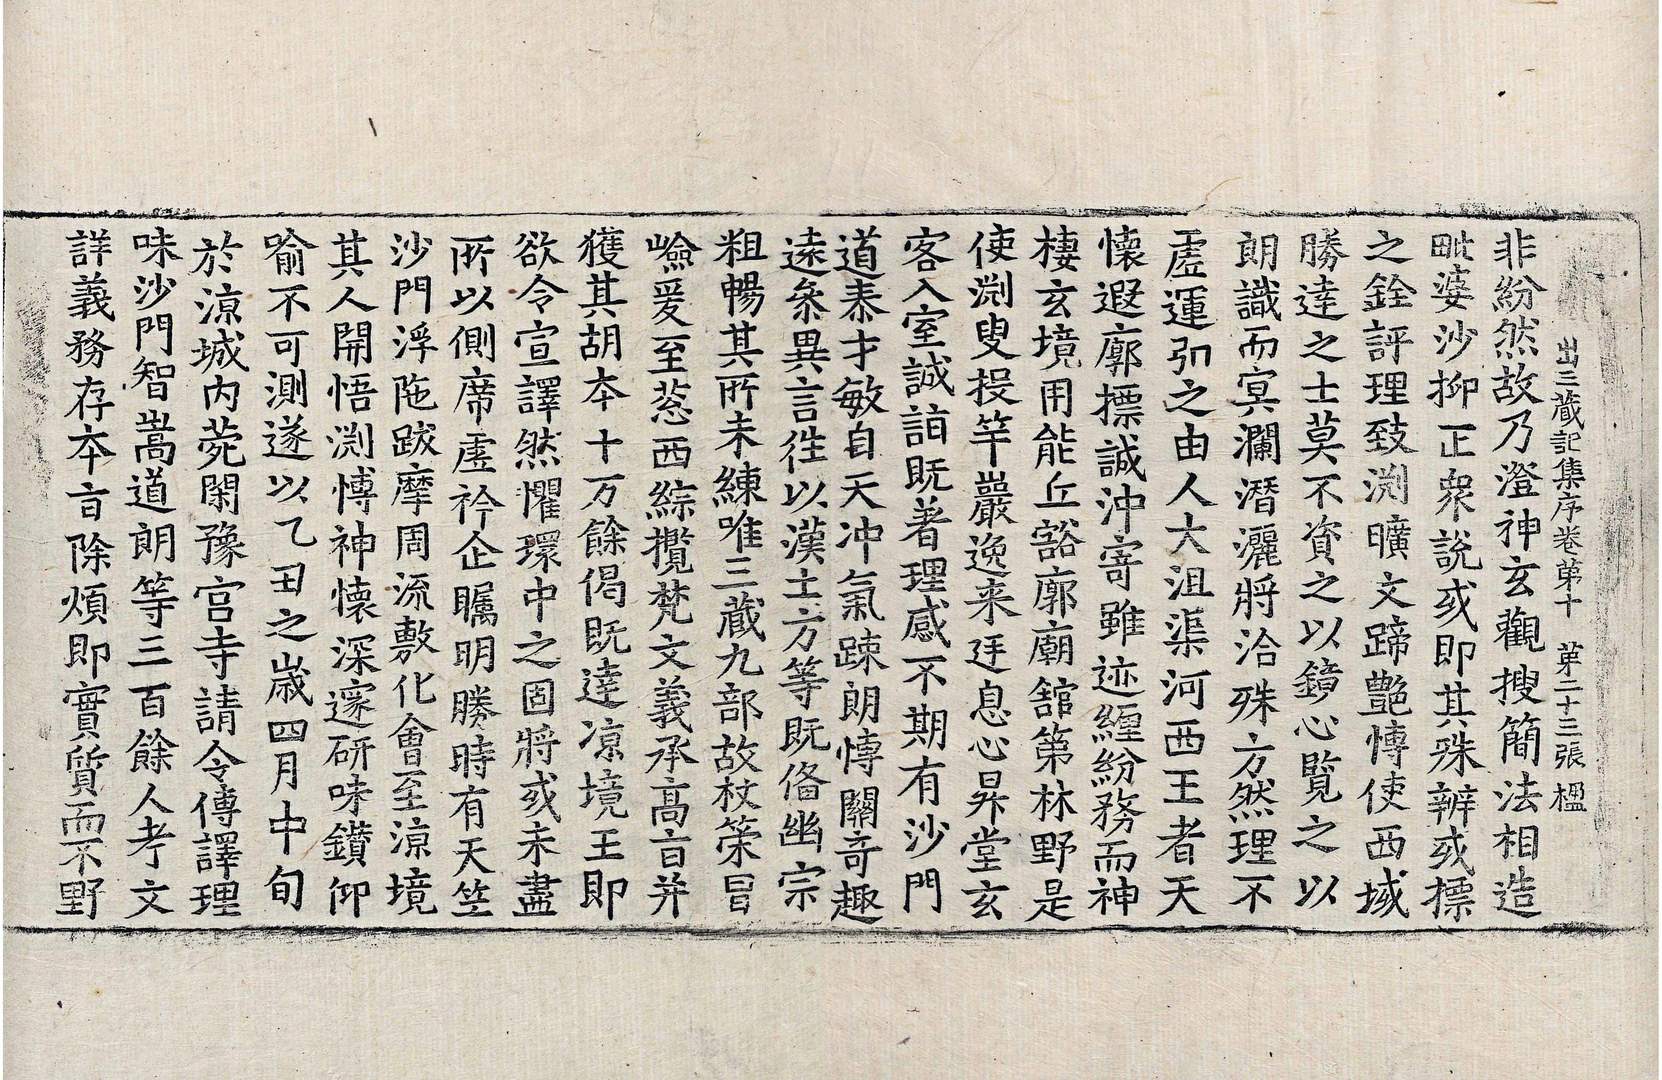 出三蔵記集序卷第十　第二十三張　楹
非紛然故乃澄神玄觀搜簡法相造
毗婆沙抑正衆說或即其殊辨或標
之銓評理致渕曠文蹄艶愽使西域
勝達之士莫不資之以鏡心覽之以
朗識而㝠瀾潜灑將洽殊方然理不
虛運弘之由人大沮渠河西王者天
懷遐廓摽誠沖寄雖迹纏紛務而神
棲玄境用能丘豁廓廟舘第林野是
使渕叟投竿巖逸来廷息心昇堂玄
客入室誠詣既著理感不期有沙門
道泰才敏自天沖氣踈朗愽關竒趣
逺叅異言徃以漢土方等既俻幽宗
粗暢其所未練唯三蔵九部故杖策冒
嶮爰至葱西綜攬梵文義承髙㫖并
獲其胡本十万餘偈既達凉境王即
欲令宣譯然懼環中之固將或未盡
所以側席虛衿企矚明勝時有天竺
沙門浮陁跋摩周流敷化會至凉境
其人開悟渕愽神懷深邃研味鑚仰
喻不可測遂以乙丑之歳四月中旬
於凉城内菀閑豫宫寺請令傳譯理
味沙門智嵩道朗等三百餘人考文
詳義務存本㫖除煩即實質而不野